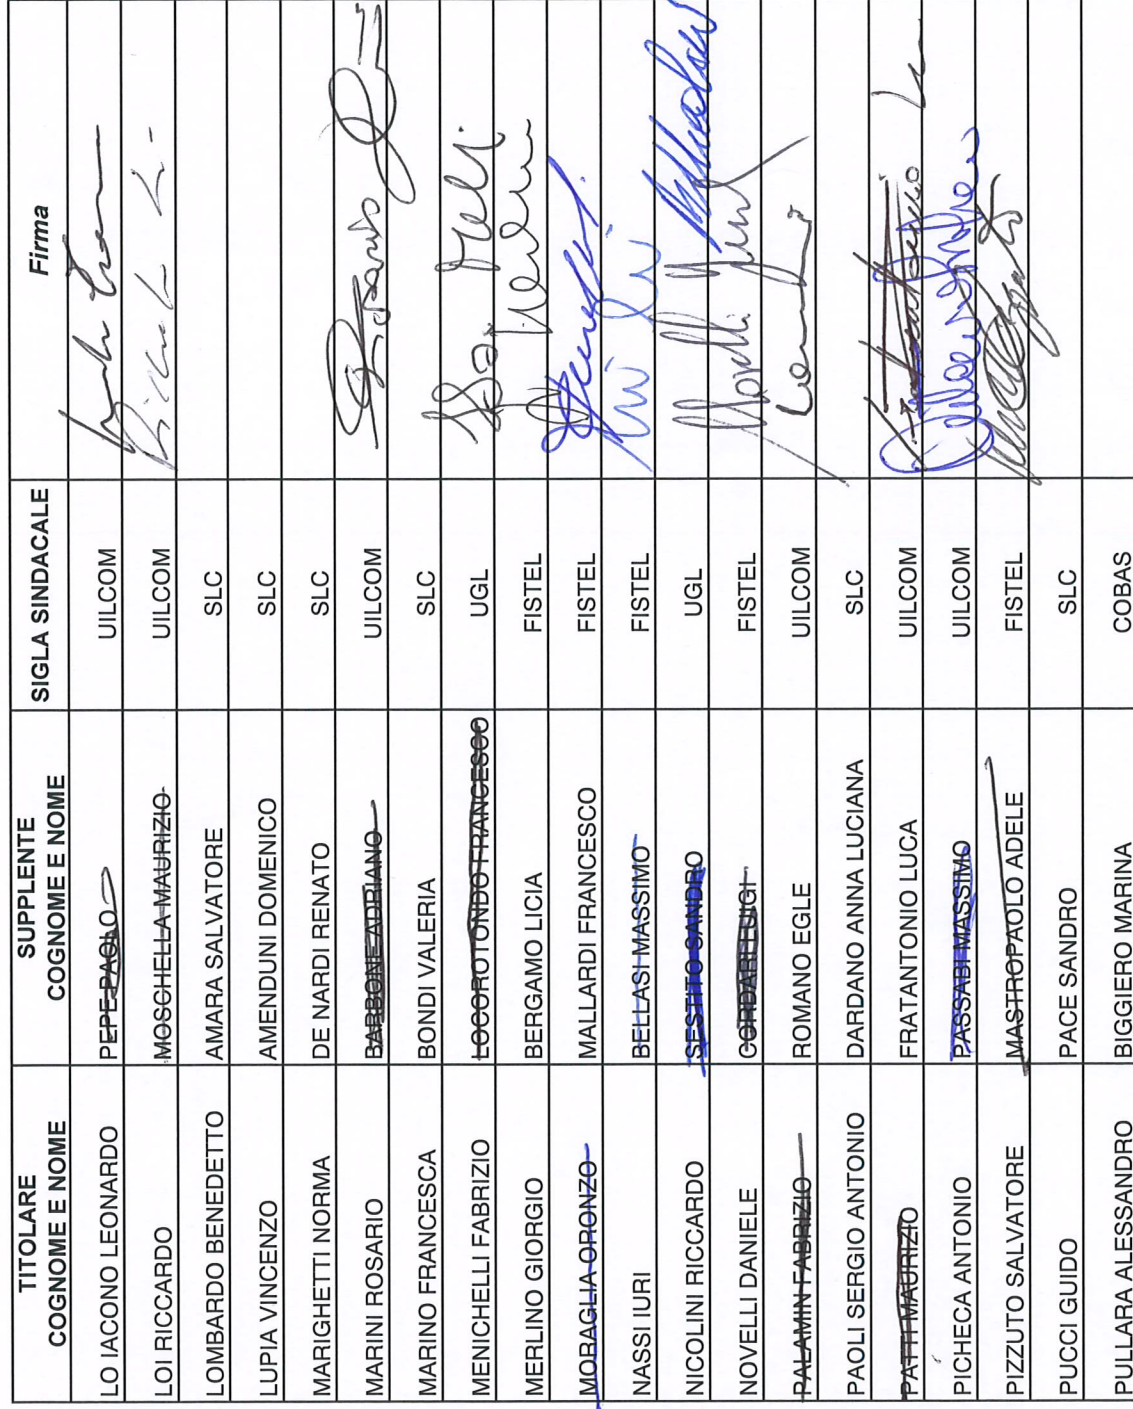 TITOLARE COGNOME E NOME SUPPLENTE COGNOME E NOME SIGLA SINDACALE Firma
LO IACONO LEONARDO PEPE PAOLO UILCOM
LOI RICCARDO MOSCHELLA MAURIZIO UILCOM
LOMBARDO BENEDETTO AMARA SALVATORE SLC
LUPIA VINCENZO AMENDUNI DOMENICO SLC
MARIGHETTI NORMA DE NARDI RENATO SLC
MARINI ROSARIO BARBONE ADRIANO UILCOM
MARINO FRANCESCA BONDI VALERIA SLC
MENICHELLI FABRIZIO LOCOROTONDO FRANCESCO UGL
MERLINO GIORGIO BERGAMO LICIA FISTEL
MORAGLIA ORONZO MALLARDI FRANCESCO FISTEL
NASSI IURI BELLASI MASSIMO FISTEL
NICOLINI RICCARDO SESTITO SANDRO UGL
NOVELLI DANIELE CORDARI LUIGI FISTEL
PALAMIN FABRIZIO ROMANO EGLE UILCOM
PAOLI SERGIO ANTONIO DARDANO ANNA LUCIANA SLC
PATTI MAURIZIO FRATANTONIO LUCA UILCOM
PICHECA ANTONIO PASSABI MASSIMO UILCOM
PIZZUTO SALVATORE MASTROPAOLO ADELE FISTEL
PUCCI GUIDO PACE SANDRO SLC
PULLARA ALESSANDRO BIGGIERO MARINA COBAS